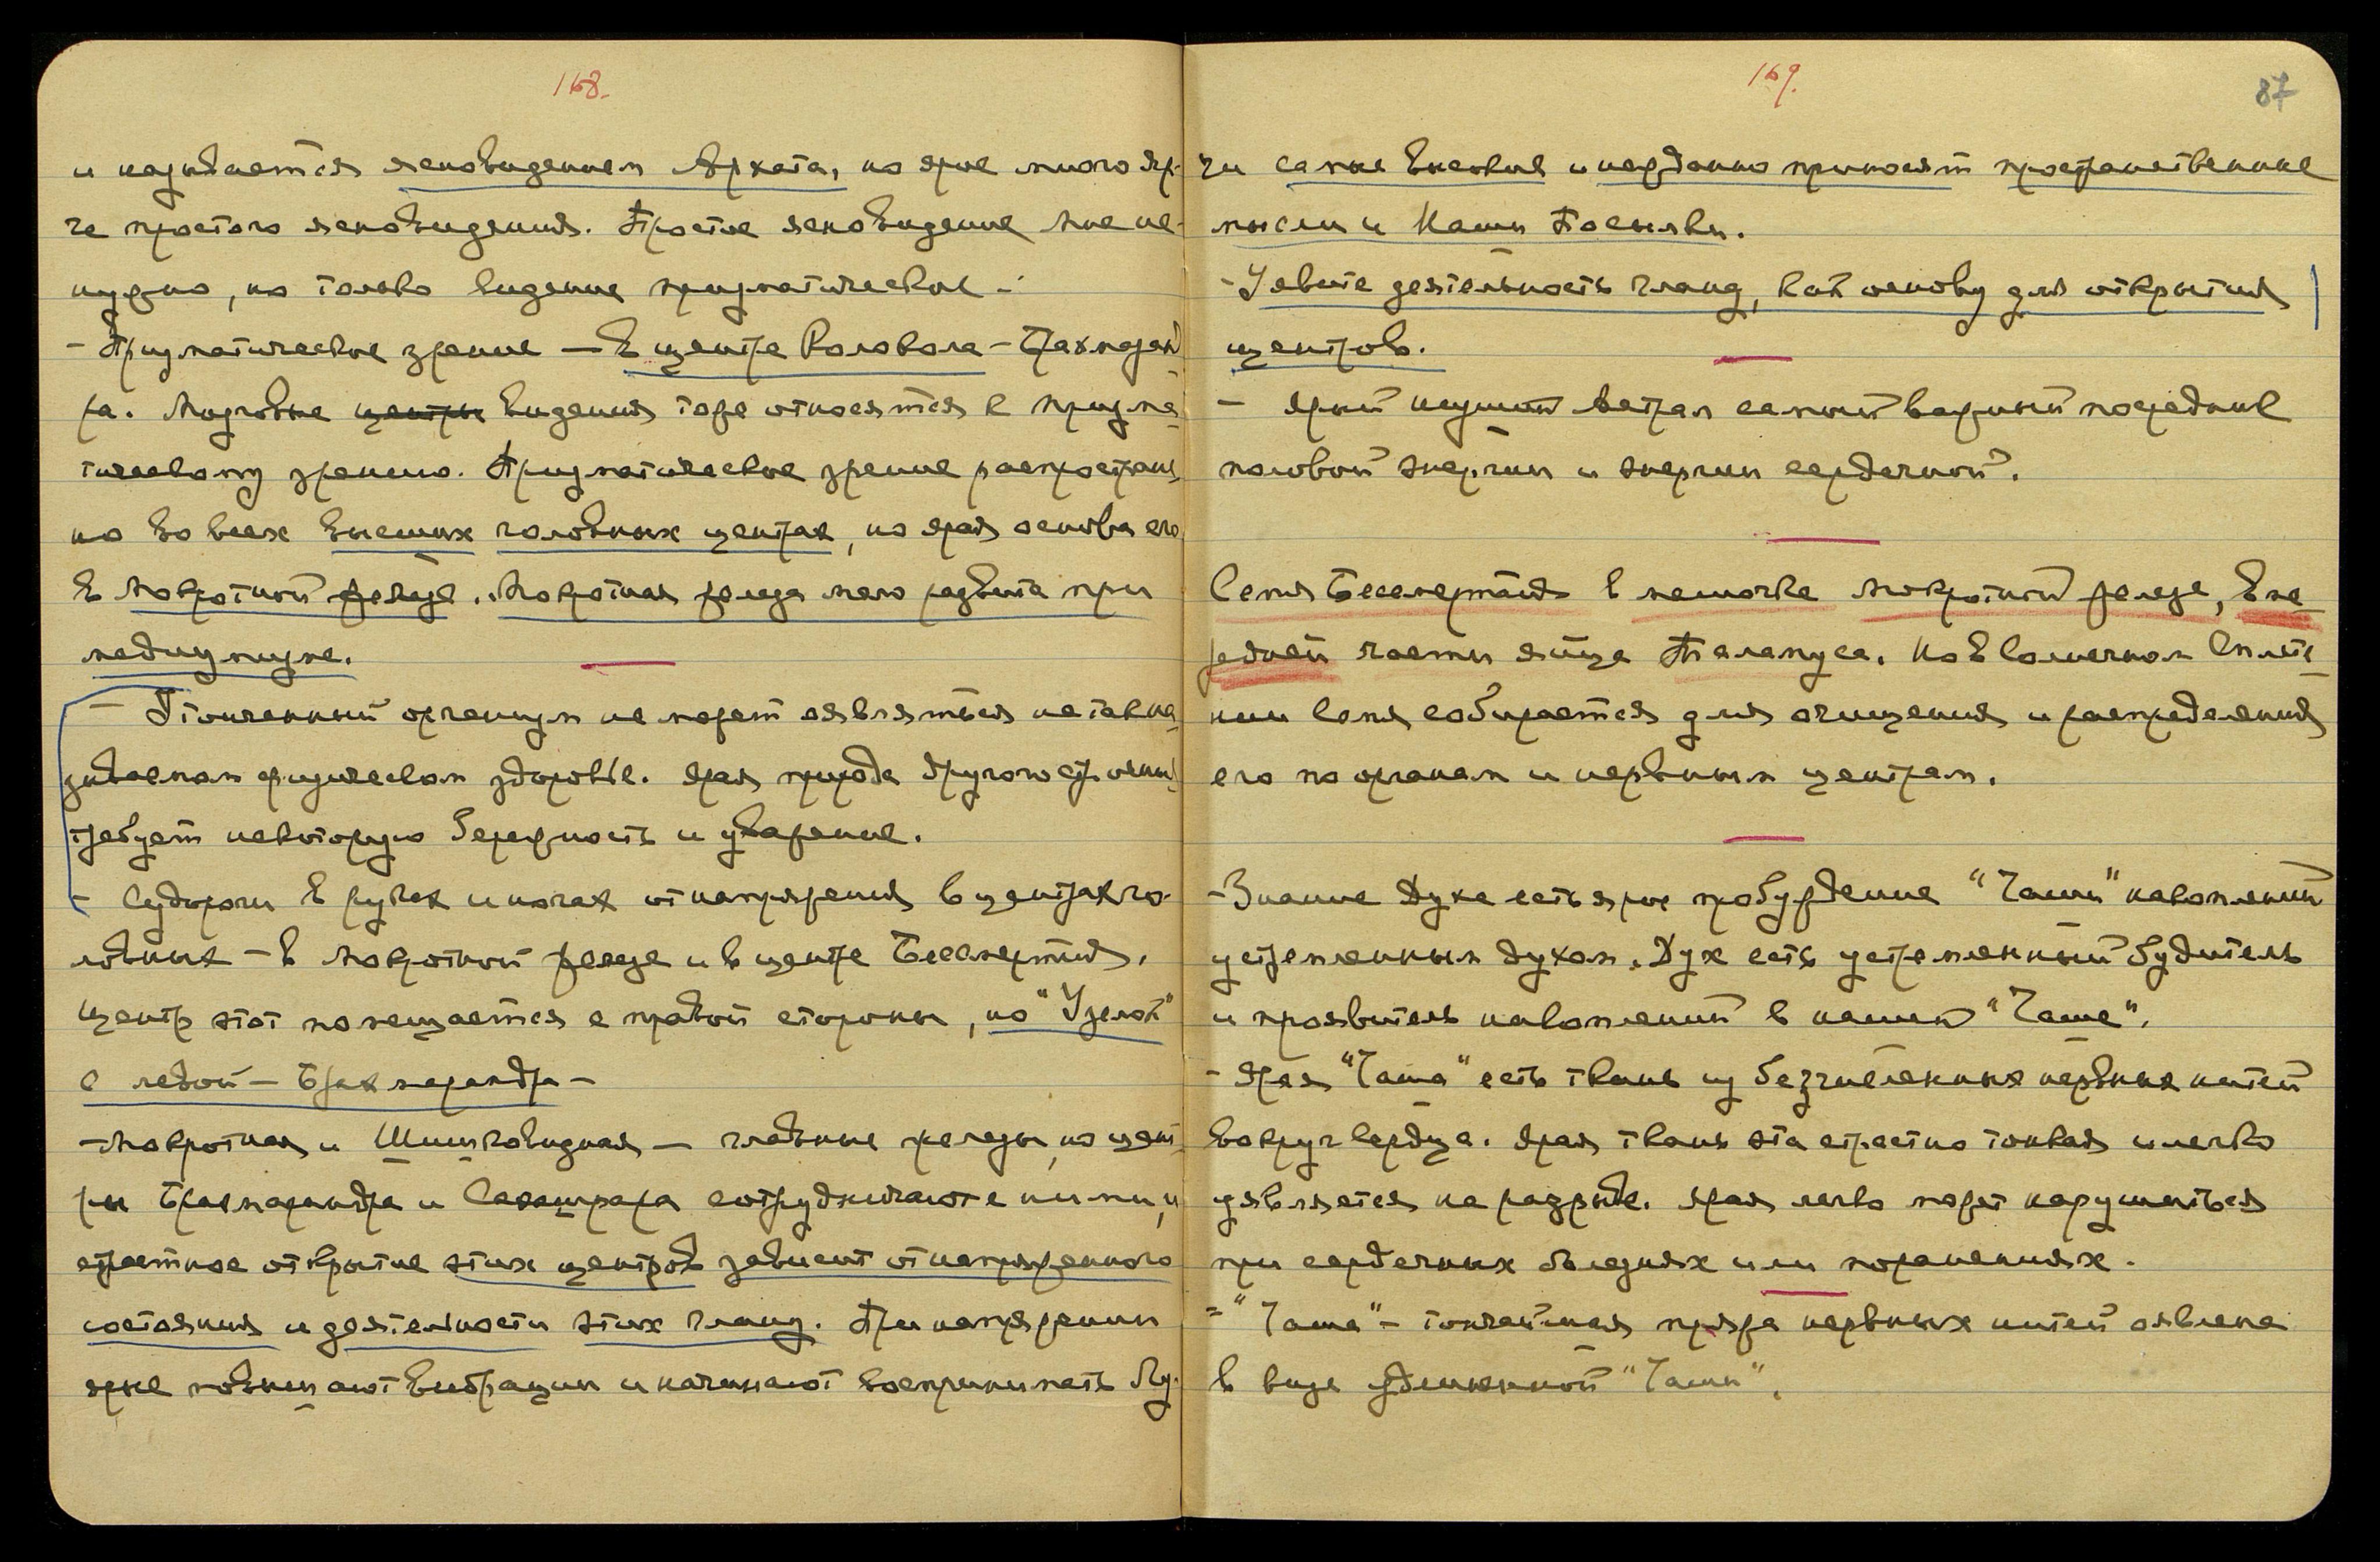 168.
и называется ясновидением Архата, но ярое много яр-
че простого ясновидения. Простое ясновидение Мне не-
нужно, но только видение призматическое –
– Призматическое зрение – в центре Колокола – Брахмаран
ра. Мозговые центры видения тоже относятся к призма
тическому зрению. Призматическое зрение распростране
но во всех высших головных центрах, но ярая основа его
в Мокротной железе. Мокротная железа мало развита при
медиумизме.
– Утонченный организм не может являться на так на
зываемом физическом здоровье. Ярая природа другого строения
требует некоторую бережность и уважение.
– Судороги в руках и ногах от напряжения в центрах го-
ловных – в Мокротной железе и в центре Бессмертия.
Центр этот помещается с правой стороны, но "Узелок"
с левой – Брахмарандра –
– Мокротная и Шишковидная – главные железы, но цент
ры Брахмарандра и Сахатрара сотрудничают с ними, и
страстное открытие этих центров зависит от напряженного
состояния и деятельности этих гланд. При напряжении
ярые повышают вибрации и начинают воспринимать Лу-
169.
87
чи самые высокие и нежданно приносят пространственные
мысли и Наши Посылки.
– Явите деятельность гланд, как основу для открытия
центров.
– Ярый кундалини самый важный посредник
половой энергии и энергии сердечной.
Семя Бессмертия в мешочке Мокротной железе, в пе
редней части яйца Таламуса. Но в Солнечном Сплете
нии Семя собирается для очищения и распределения
его по органам и нервным центрам.
– Знание Духа есть ярое пробуждение "Чаши" накоплений
устремленным духом. Дух есть устремленный будитель
и проявитель накоплений в нашей "Чаше".
– Ярая "Чаша" есть ткань из безчисленных нервных нитей
вокруг Сердца. Ярая ткань эта страстно тонкая и легко
уявляется на разрыве. Ярая легко может нарушиться
при сердечных болезнях или поранениях.
= "Чаша" – тончайшая пряжа нервных нитей оявлена
в виде удлиненной "Чаши".